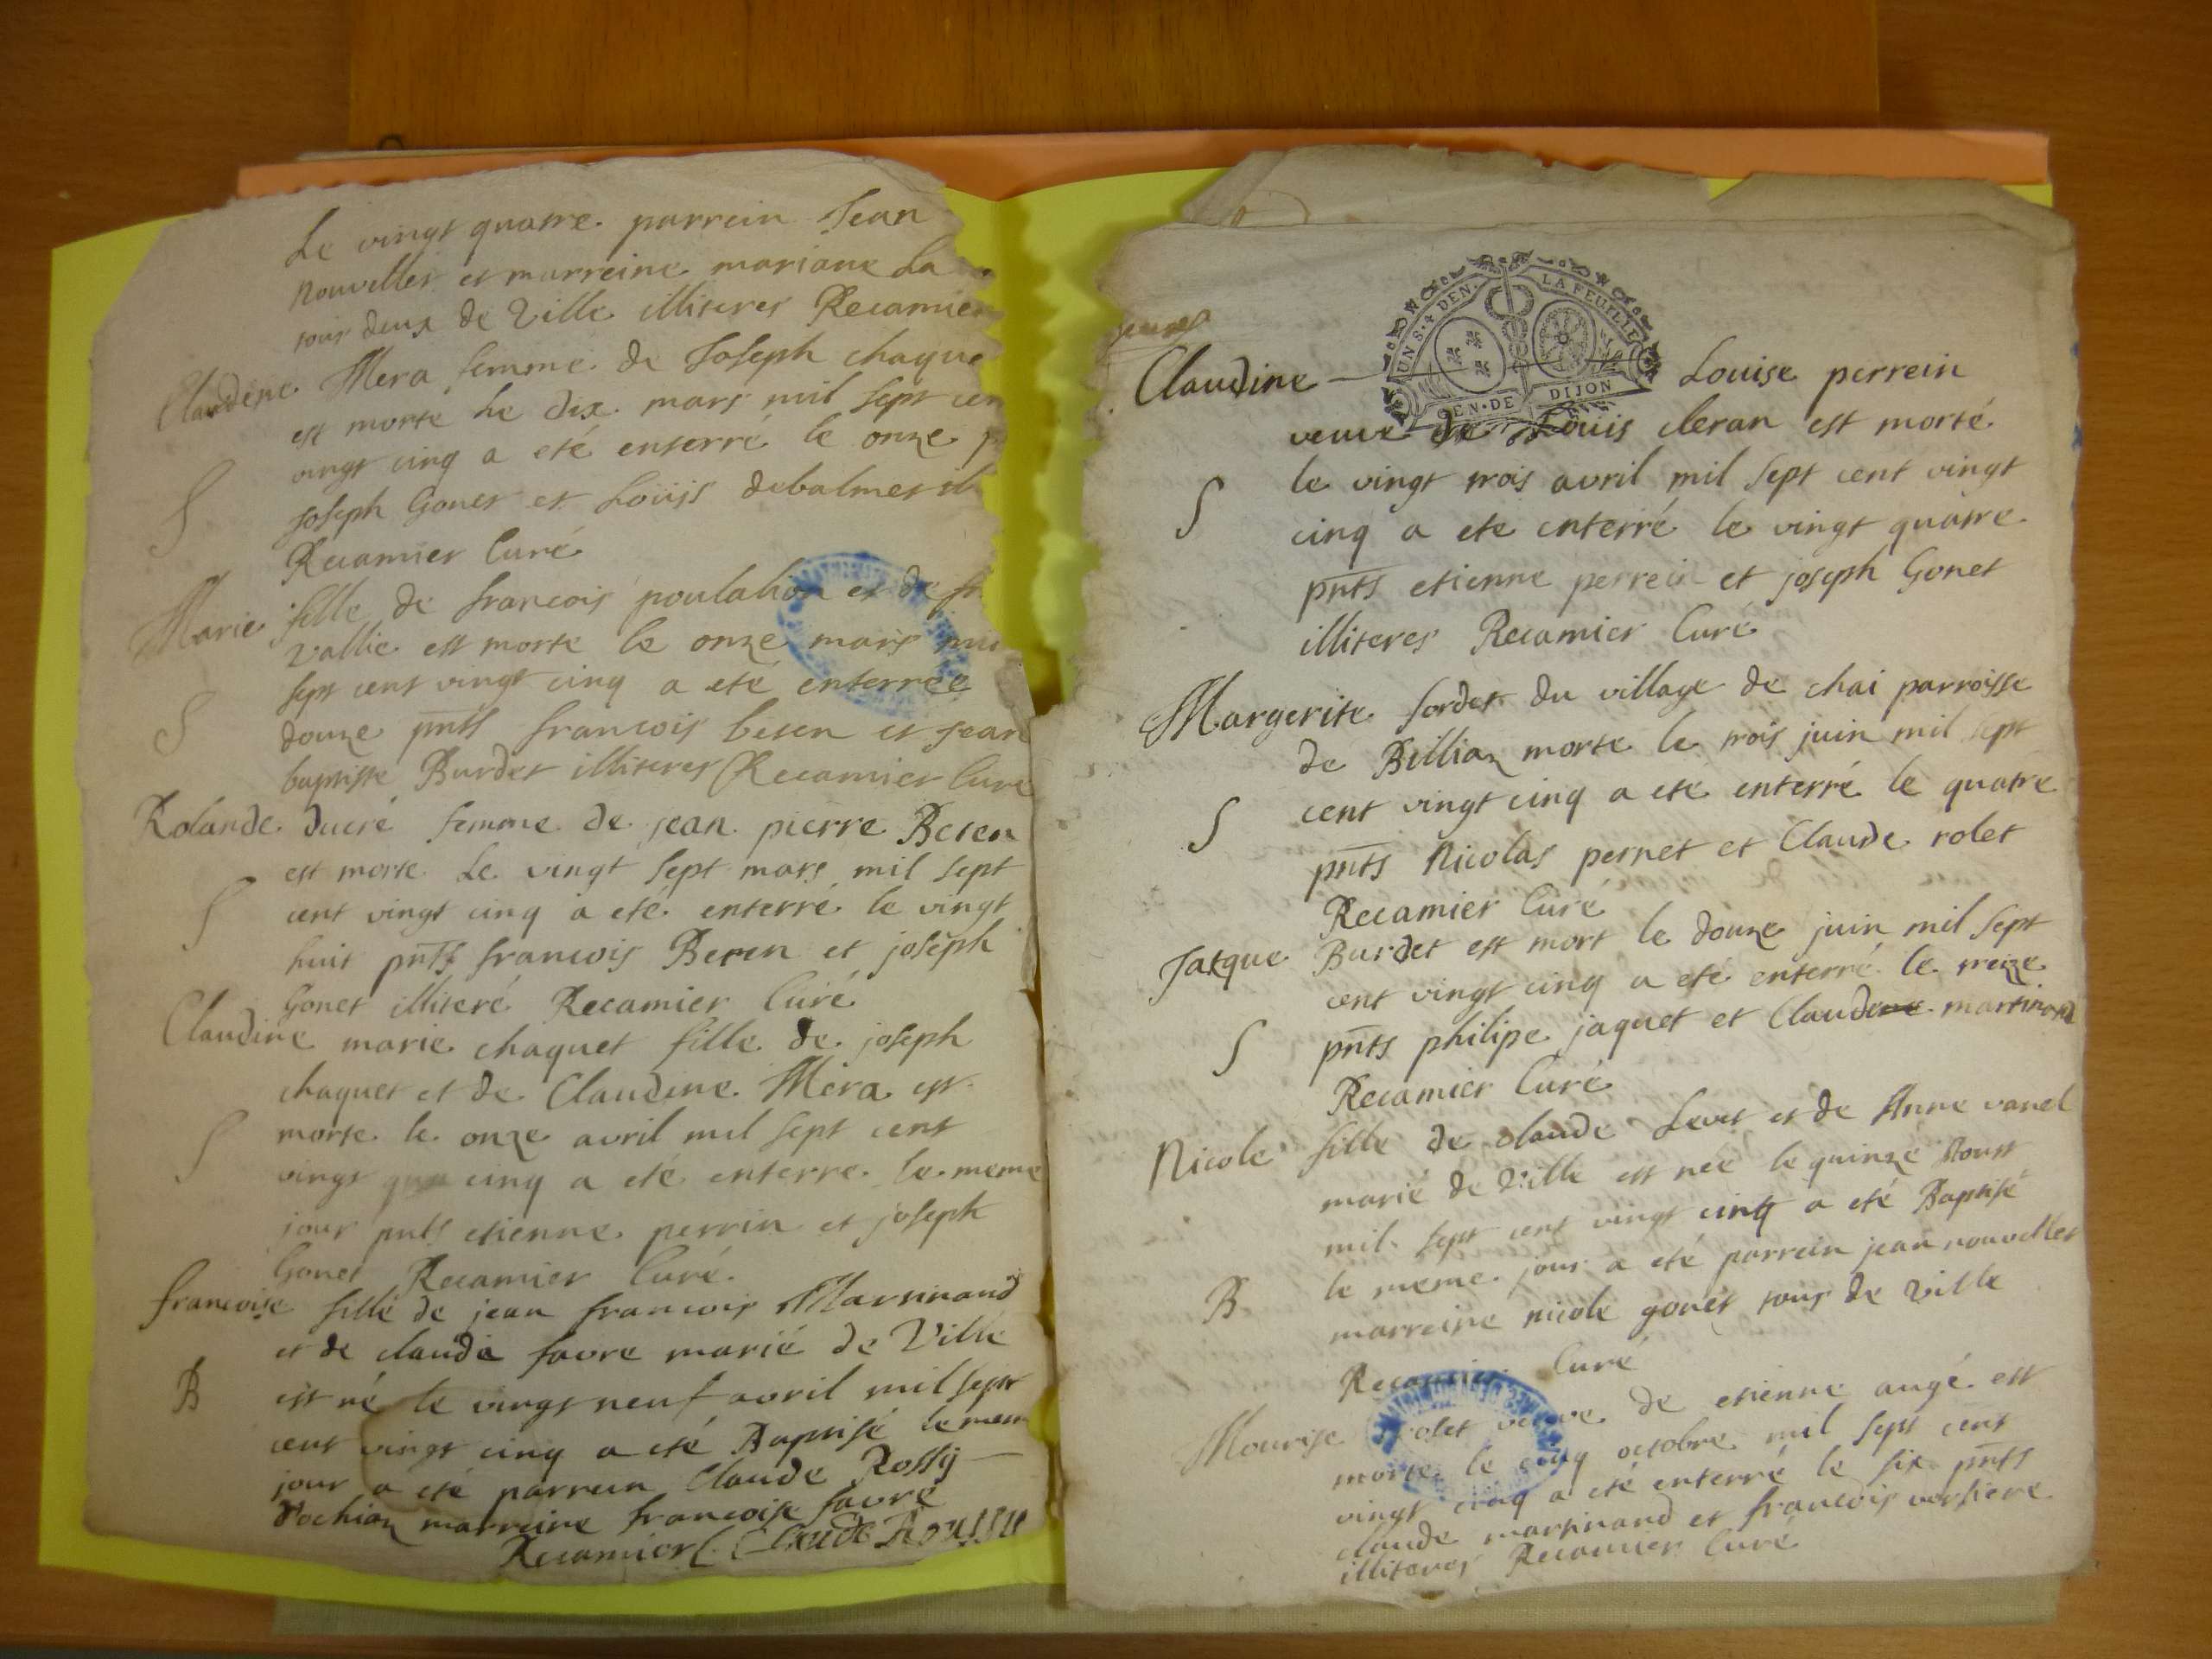 Le vingt quatre parrein Jean
nouvelles et marreine mariane La
tous deux de Ville illiteres Recamier
Claudene Mera femme de Joseph chaque
est morte Le dix mars mil sept cen
vingt cinq a eté enterré le onze p
S
joseph Gonet et Loüis debalmes ill
Recamier Curé
Marie fille de francois poulalion et de fr
vallie est morte le onze mars mil
sept cent vingt cinq a eté enterrée
S
douze pnts francois beten et jean
baptiste Burdet illiteres Recamier Curé
Rolande ducré femme de jean pierre Beten
est morte Le vingt sept mars mil sept
S
cent vingt cinq a eté enterré le vingt
huit pnts francois Beten et joseph
Gonet illiteré Recamier Curé
Claudine marie chaquet fille de joseph
chaquet et de Claudine Mera est
S
morte le onze avril mil sept cent
vingt cinq a eté enterre le meme
jour pnts etienne perrin et joseph
Gonet Recamier Curé
francoise fille de jean francois Martinand
et de claude favre marié de Ville
B
est né le vingt neuf avril mil sept
cent vingt cinq a eté Baptisé le mem
jour a eté parrein Claude Rossy
vochian marreine francoise favre
Recamier C. Claude Roussy
UN S. 4 DEN. LA FEUILLE
GEN. DE DIJON
Claudine Louise perrein
veuve de Louis cleran est morté
le vingt trois avril mil sept cent vingt
S
cinq a ete enterré le vingt quatre
pnts etienne perrein et joseph Gonet
illiteres Recamier Curé
Margerite sordet du village de chai parroisse
de Billian morte le trois juin mil sept
S
cent vingt cinq a ete enterré le quatre
pnts Nicolas pernet et Claude rolet
Recamier Curé
Jatque Burdet est mort le douze juin mil sept
cent vingt cinq a eté enterré le treize
S
pnts philipe jaquet et Claude martinand
Recamier Curé
Nicole fille de claude Levet et de Anne vanel
marié de Ville est née le quinze Aoust
mil sept cent vingt cinq a eté Baptisé
B
le meme jour a eté parrein jean nouvelles
marreine nicole gonet tous de ville
Recamier Curé
Mourise rolet veuve de etienne augé est
morte le cinq octobre mil sept cent
vingt cinq a eté enterré le six pnts
claude martinand et francois versiere
illiteres Recamier Curé